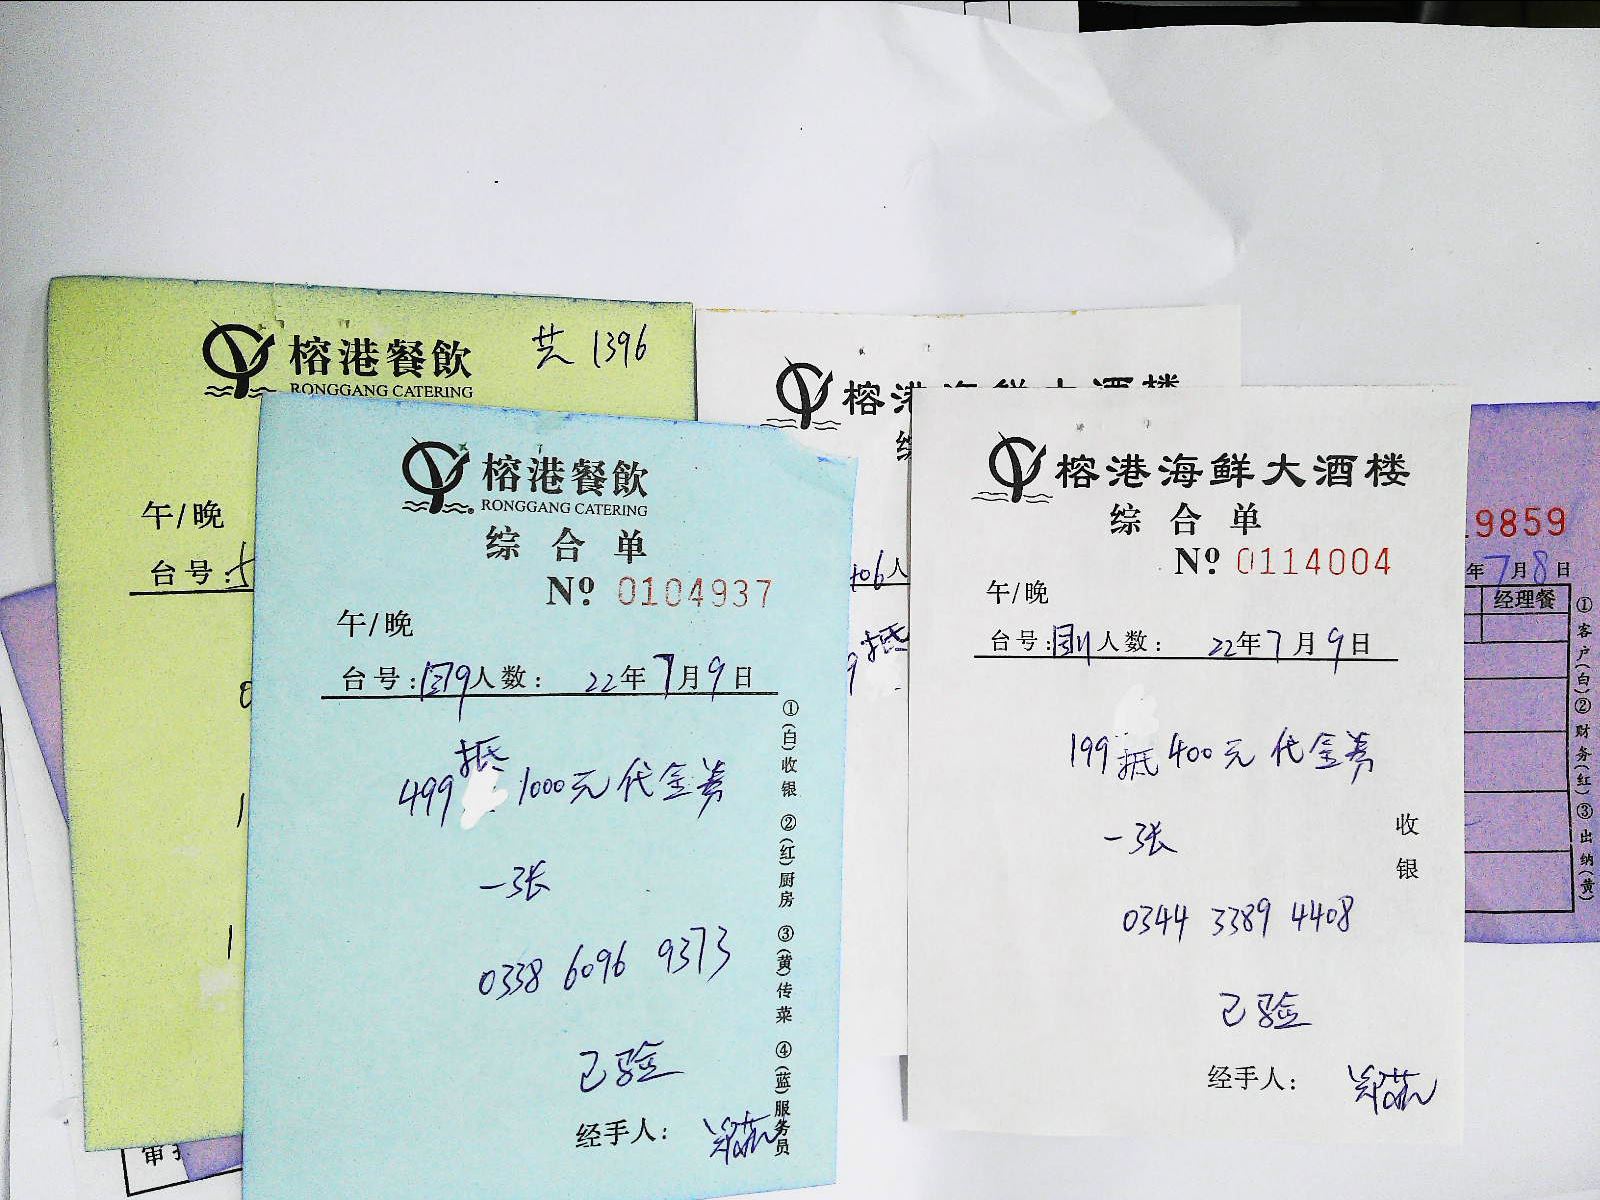 榕港餐飲
RONGGANG CATERING
共 1396
午/晚
台号:
榕港餐飲
RONGGANG CATERING
综合单
Nº 0104937
午/晚
台号: 人数: 22年7月9日
499抵1000元代金券
一张
0338 6096 9373
已验
经手人:
①(白)收银 ②(红)厨房 ③(黄)传菜 ④(蓝)服务员
榕港海鲜大酒楼
人
抵
榕港海鲜大酒楼
综合单
Nº 0114004
午/晚
台号: 人数: 22年7月9日
199抵400元代金券
一张
0344 3389 4408
已验
收银
经手人:
9859
年7月8日
经理餐
①客户(白)②财务(红)③出纳(黄)
审